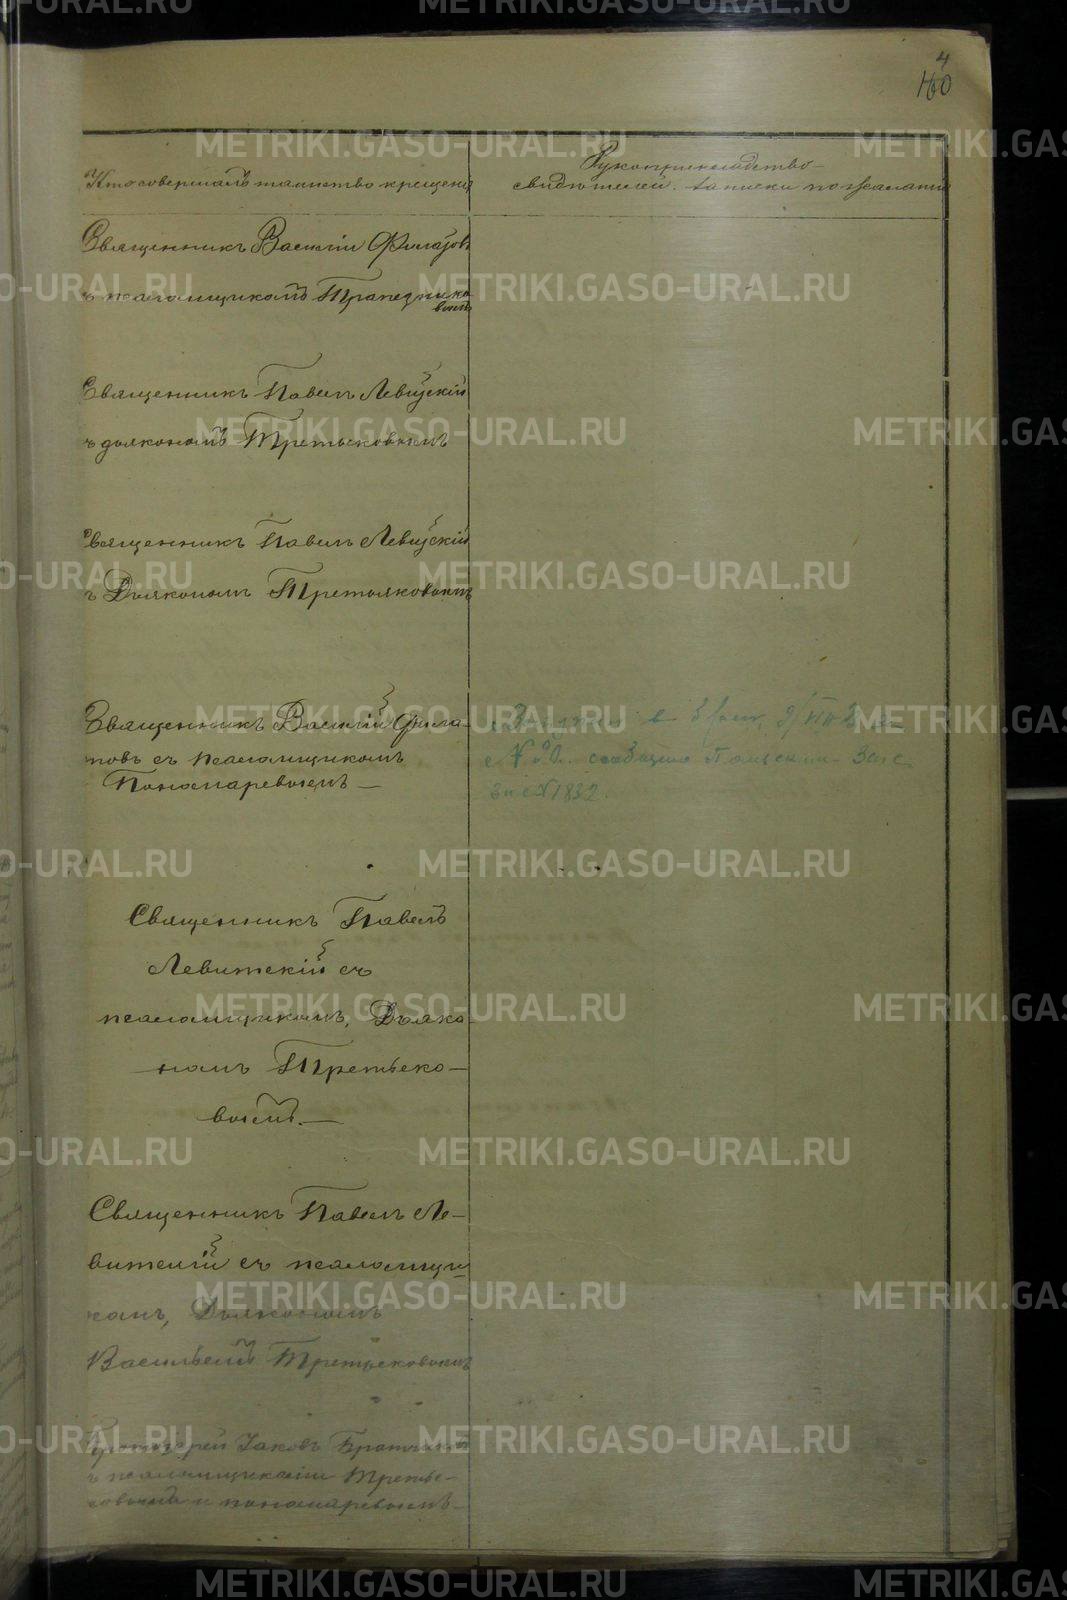 4
160
Кто совершалъ таинство крещенія
Рукоприкладство
свидѣтелей записки по желанію
Священникъ Василій Филатовъ
съ псаломщикомъ Трапезнико
вымъ
Священникъ Павелъ Левицкій
съ дьякономъ Третьяковымъ
Священникъ Павелъ Левицкій
съ Дьякономъ Третьяковымъ
Священникъ Василій Фила-
товъ съ псаломщикомъ
Пономаревымъ —
сообщено
1832.
Священникъ Павелъ
Левитскій съ
псаломщикомъ, Дьяко
номъ Третьеко-
вымъ.—
Священникъ Павелъ Ле-
витскій съ псаломщи-
комъ, Дьякономъ
Васильемъ Третьековымъ
Протоіерей Іаковъ
съ псаломщиками Третье-
ковымъ и Пономаревымъ
METRIKI.GASO-URAL.RU